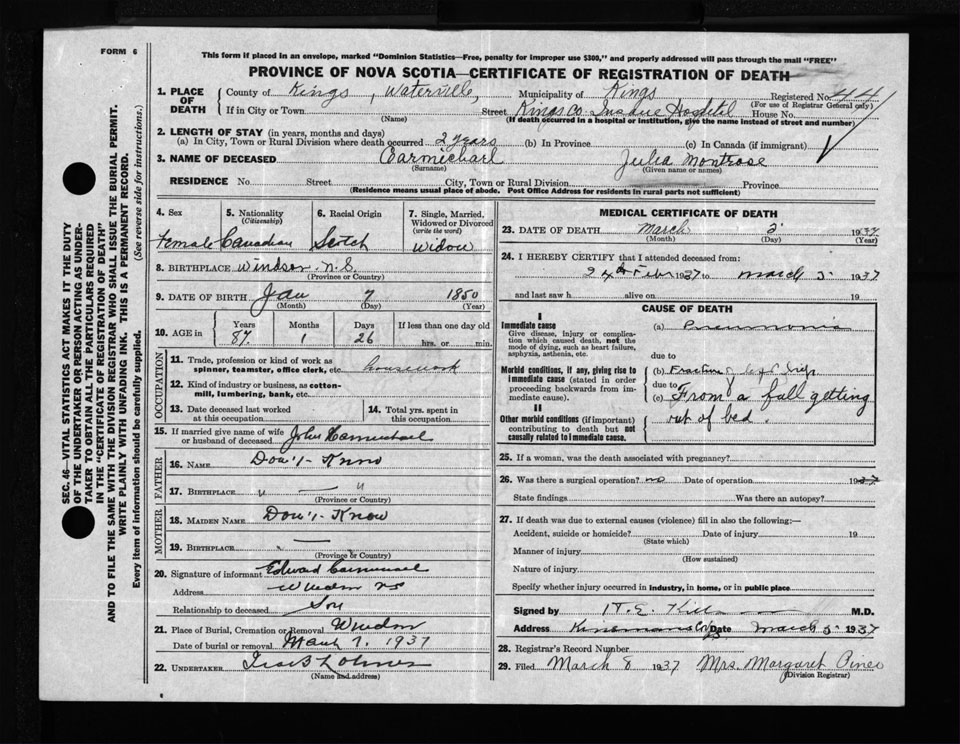 FORM 6
This form if placed in an envelope, marked "Dominion Statistics—Free, penalty for improper use $300," and properly addressed will pass through the mail "FREE"
PROVINCE OF NOVA SCOTIA—CERTIFICATE OF REGISTRATION OF DEATH
SEC. 46—VITAL STATISTICS ACT MAKES IT THE DUTY
OF THE UNDERTAKER OR PERSON ACTING AS UNDER-
TAKER TO OBTAIN ALL THE PARTICULARS REQUIRED
IN THE "CERTIFICATE OF REGISTRATION OF DEATH"
AND TO FILE THE SAME WITH THE DIVISION REGISTRAR WHO SHALL ISSUE THE BURIAL PERMIT.
WRITE PLAINLY WITH UNFADING INK. THIS IS A PERMANENT RECORD.
Every item of information should be carefully supplied. (See reverse side for instructions.)
1. PLACE OF DEATH County of Kings, Waterville, Municipality of Kings Registered No. 44
(For use of Registrar General only)
If in City or Town Street Kings Co. Insane Hospital House No.
(Name) (If death occurred in a hospital or institution, give the name instead of street and number)
2. LENGTH OF STAY (in years, months and days)
(a) In City, Town or Rural Division where death occurred 2 years (b) In Province (c) In Canada (if immigrant)
3. NAME OF DECEASED Carmichael Julia Montrose
(Surname) (Given name or names)
RESIDENCE No. Street City, Town or Rural Division Province
(Residence means usual place of abode. Post Office Address for residents in rural parts not sufficient)
4. Sex 5. Nationality (Citizenship) 6. Racial Origin 7. Single, Married, Widowed or Divorced (write the word)
Female Canadian Scotch Widow
8. BIRTHPLACE Windsor N.S.
(Province or Country)
9. DATE OF BIRTH Jan 7 1850
(Month) (Day) (Year)
10. AGE in Years Months Days If less than one day old
87 1 26 hrs. or min.
OCCUPATION
11. Trade, profession or kind of work as
spinner, teamster, office clerk, etc. housework
12. Kind of industry or business, as cotton-
mill, lumbering, bank, etc.
13. Date deceased last worked at this occupation 14. Total yrs. spent in this occupation
15. If married give name of wife
or husband of deceased John Carmichael
FATHER
16. NAME Don't Know
17. BIRTHPLACE " — "
(Province or Country)
MOTHER
18. MAIDEN NAME Don't Know
19. BIRTHPLACE " —
(Province or Country)
20. Signature of informant Edward Carmichael
Address Windsor NS
Relationship to deceased Son
21. Place of Burial, Cremation or Removal Windsor
Date of burial or removal March 7, 1937
22. UNDERTAKER
(Name and address)
MEDICAL CERTIFICATE OF DEATH
23. DATE OF DEATH March 1937
(Month) (Day) (Year)
24. I HEREBY CERTIFY that I attended deceased from:
24th Febr 1937 to March 1937
and last saw h alive on 19
CAUSE OF DEATH
I
Immediate cause
Give disease, injury or complica-
tion which caused death, not the
mode of dying, such as heart failure,
asphyxia, asthenia, etc.
(a) Pneumonia
due to
Morbid conditions, if any, giving rise to
immediate cause (stated in order
proceeding backwards from im-
mediate cause).
(b) Fracture hip
due to
(c) From a fall getting
out of bed.
II
Other morbid conditions (if important)
contributing to death but not
causally related to immediate cause.
25. If a woman, was the death associated with pregnancy?
26. Was there a surgical operation? no Date of operation 1937
State findings Was there an autopsy?
27. If death was due to external causes (violence) fill in also the following:—
Accident, suicide or homicide? Date of injury 19
(State which)
Manner of injury
(How sustained)
Nature of injury
Specify whether injury occurred in industry, in home, or in public place
Signed by H.E. M.D.
Address Date March 1937
28. Registrar's Record Number
29. Filed March 8 1937 Mrs. Margaret Pineo
(Division Registrar)